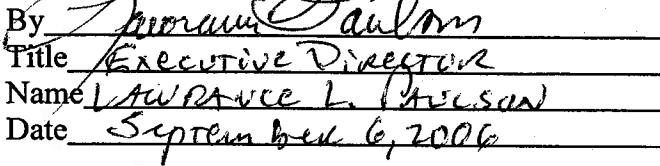 By Lawrance Paulson
Title Executive Director
Name LAWRANCE L. PAULSON
Date September 6, 2006